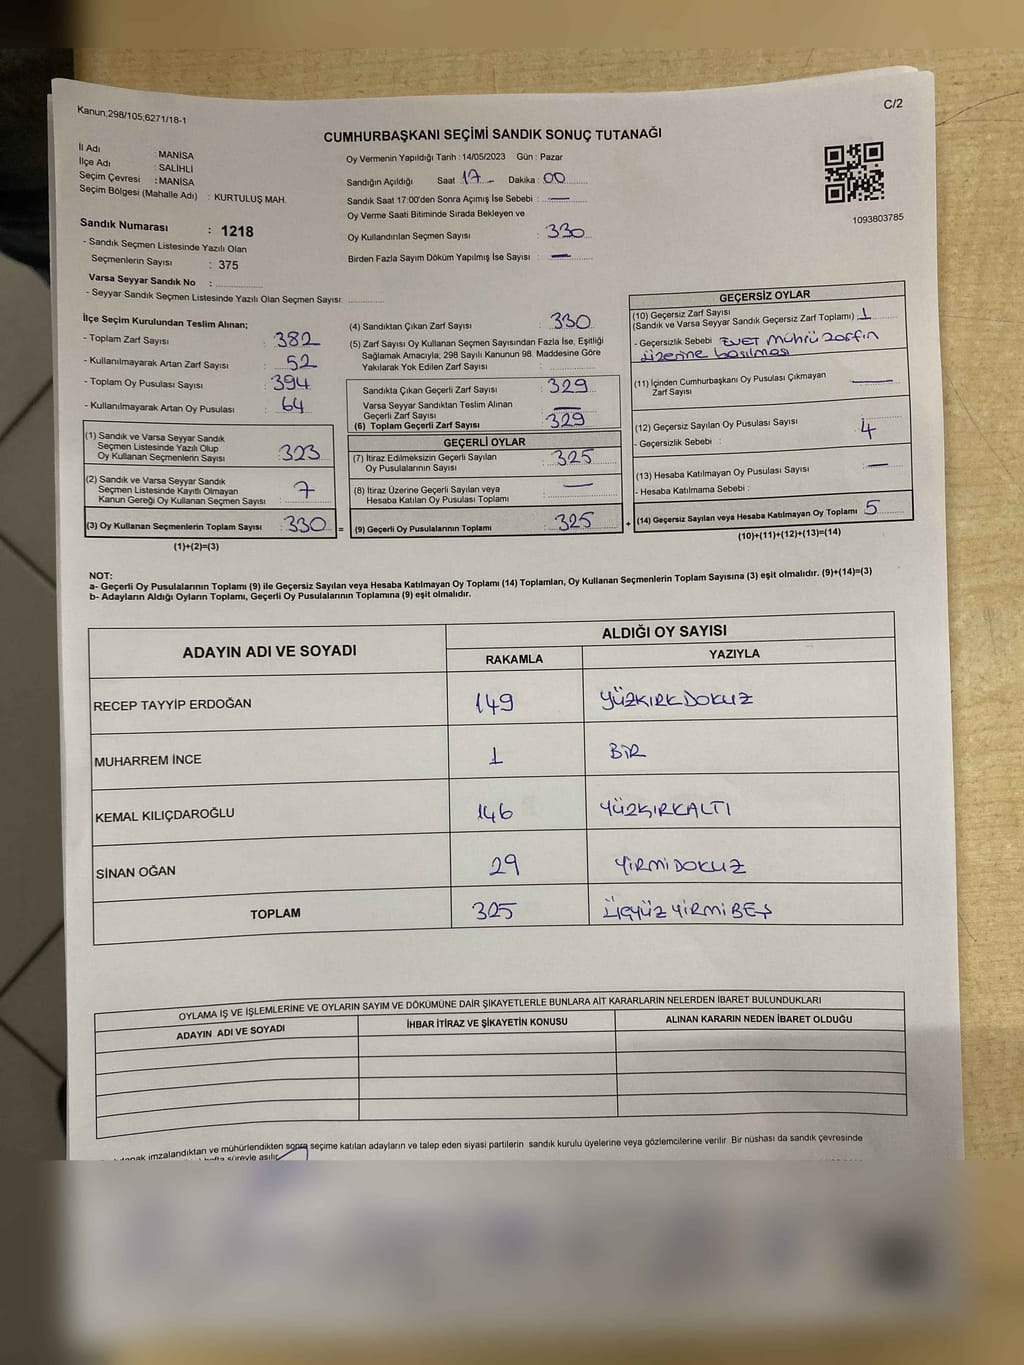 Kanun;298/105;6271/18-1
C/2
CUMHURBAŞKANI SEÇİMİ SANDIK SONUÇ TUTANAĞI
İl Adı : MANİSA
İlçe Adı : SALİHLİ
Seçim Çevresi : MANİSA
Seçim Bölgesi (Mahalle Adı) : KURTULUŞ MAH.
Sandık Numarası : 1218
- Sandık Seçmen Listesinde Yazılı Olan
Seçmenlerin Sayısı : 375
Varsa Seyyar Sandık No :
- Seyyar Sandık Seçmen Listesinde Yazılı Olan Seçmen Sayısı:
Oy Vermenin Yapıldığı Tarih : 14/05/2023 Gün : Pazar
Sandığın Açıldığı Saat 17 Dakika : 00
Sandık Saat 17:00'den Sonra Açımış İse Sebebi : —
Oy Verme Saati Bitiminde Sırada Bekleyen ve
Oy Kullandırılan Seçmen Sayısı : 330
Birden Fazla Sayım Döküm Yapılmış İse Sayısı : —
1093803785
İlçe Seçim Kurulundan Teslim Alınan;
- Toplam Zarf Sayısı : 382
- Kullanılmayarak Artan Zarf Sayısı : 52
- Toplam Oy Pusulası Sayısı : 394
- Kullanılmayarak Artan Oy Pusulası : 64
(1) Sandık ve Varsa Seyyar Sandık
Seçmen Listesinde Yazılı Olup
Oy Kullanan Seçmenlerin Sayısı : 323
(2) Sandık ve Varsa Seyyar Sandık
Seçmen Listesinde Kayıtlı Olmayan
Kanun Gereği Oy Kullanan Seçmen Sayısı : 7
(3) Oy Kullanan Seçmenlerin Toplam Sayısı : 330 =
(1)+(2)=(3)
(4) Sandıktan Çıkan Zarf Sayısı : 330
(5) Zarf Sayısı Oy Kullanan Seçmen Sayısından Fazla İse, Eşitliği
Sağlamak Amacıyla; 298 Sayılı Kanunun 98. Maddesine Göre
Yakılarak Yok Edilen Zarf Sayısı :
Sandıkta Çıkan Geçerli Zarf Sayısı : 329
Varsa Seyyar Sandıktan Teslim Alınan
Geçerli Zarf Sayısı : —
(6) Toplam Geçerli Zarf Sayısı : 329
GEÇERLİ OYLAR
(7) İtiraz Edilmeksizin Geçerli Sayılan
Oy Pusulalarının Sayısı : 325
(8) İtiraz Üzerine Geçerli Sayılan veya
Hesaba Katılan Oy Pusulası Toplamı : —
(9) Geçerli Oy Pusulalarının Toplamı : 325 +
GEÇERSİZ OYLAR
(10) Geçersiz Zarf Sayısı
(Sandık ve Varsa Seyyar Sandık Geçersiz Zarf Toplamı) : 1
- Geçersizlik Sebebi : EVET mührü zarfın
üzerine basılması
(11) İçinden Cumhurbaşkanı Oy Pusulası Çıkmayan
Zarf Sayısı : —
(12) Geçersiz Sayılan Oy Pusulası Sayısı : 4
- Geçersizlik Sebebi :
(13) Hesaba Katılmayan Oy Pusulası Sayısı : —
- Hesaba Katılmama Sebebi :
(14) Geçersiz Sayılan veya Hesaba Katılmayan Oy Toplamı : 5
(10)+(11)+(12)+(13)=(14)
NOT:
a- Geçerli Oy Pusulalarının Toplamı (9) ile Geçersiz Sayılan veya Hesaba Katılmayan Oy Toplamı (14) Toplamları, Oy Kullanan Seçmenlerin Toplam Sayısına (3) eşit olmalıdır. (9)+(14)=(3)
b- Adayların Aldığı Oyların Toplamı, Geçerli Oy Pusulalarının Toplamına (9) eşit olmalıdır.
ADAYIN ADI VE SOYADI
ALDIĞI OY SAYISI
RAKAMLA YAZIYLA
RECEP TAYYİP ERDOĞAN 149 YÜZKIRKDOKUZ
MUHARREM İNCE 1 BİR
KEMAL KILIÇDAROĞLU 146 YÜZKIRKALTI
SİNAN OĞAN 29 YİRMİDOKUZ
TOPLAM 325 ÜÇYÜZYİRMİBEŞ
OYLAMA İŞ VE İŞLEMLERİNE VE OYLARIN SAYIM VE DÖKÜMÜNE DAİR ŞİKAYETLERLE BUNLARA AİT KARARLARIN NELERDEN İBARET BULUNDUKLARI
ADAYIN ADI VE SOYADI İHBAR İTİRAZ VE ŞİKAYETİN KONUSU ALINAN KARARIN NEDEN İBARET OLDUĞU
imzalandıktan ve mühürlendikten sonra seçime katılan adayların ve talep eden siyasi partilerin sandık kurulu üyelerine veya gözlemcilerine verilir. Bir nüshası da sandık çevresinde